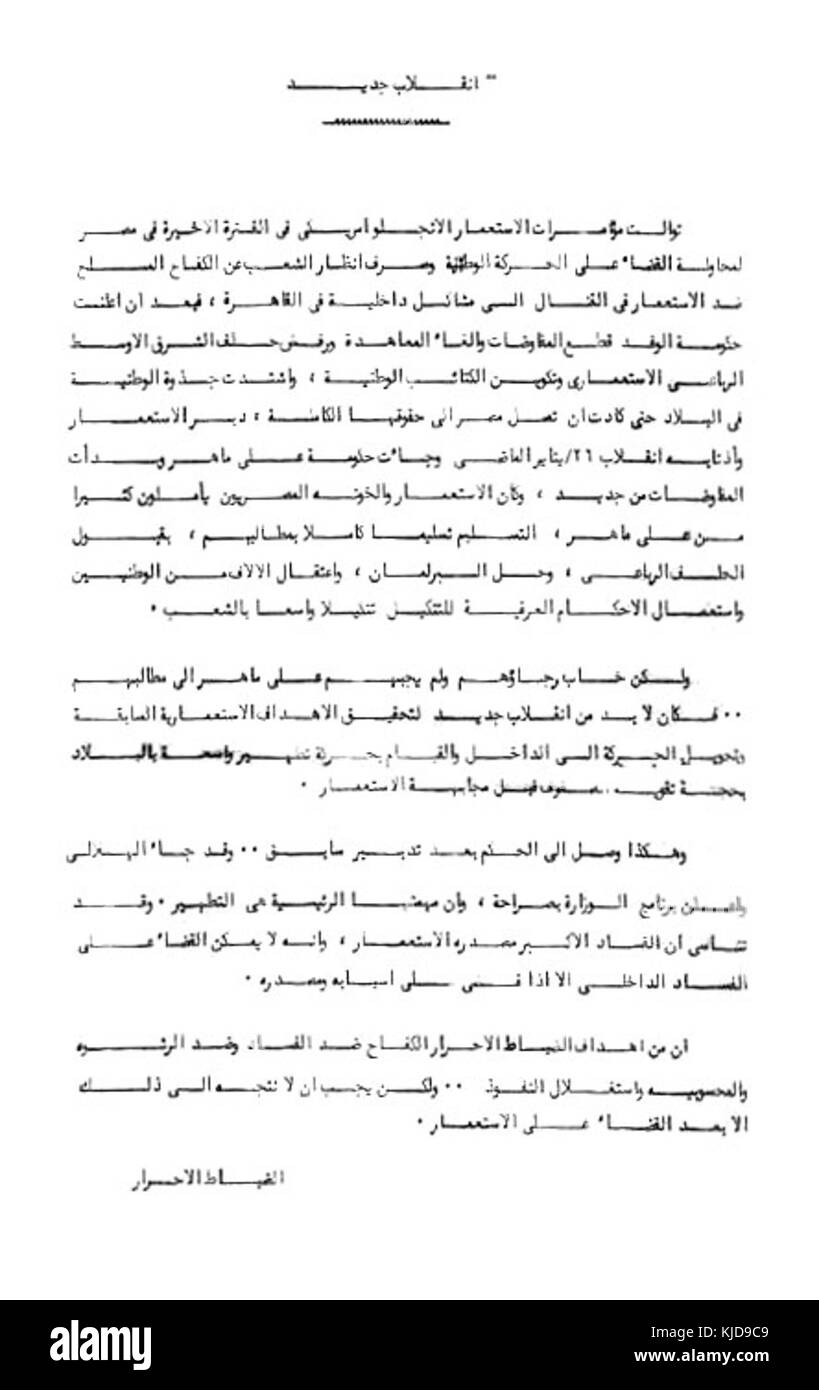 " انقلاب جديد
توالت مؤامرات الاستعمار الانجلو امريكى فى الفترة الاخيرة فى مصر
لمحاولة القضاء على الحركة الوطنية وصرف انظار الشعب عن الكفاح المسلح
ضد الاستعمار فى القنال الى مشاكل داخلية فى القاهرة ، فبعد ان اعلنت
حكومة الوفد قطع المفاوضات والغاء المعاهدة ورفض حلف الشرق الاوسط
الرباعى الاستعمارى وتكوين الكتائب الوطنية ، واشتدت جذوة الوطنية
فى البلاد حتى كادت ان تصل مصر الى حقوقها الكاملة ، دبر الاستعمار
وأذنابه انقلاب ٢٦/يناير الماضى وجاءت حكومة على ماهر وبدأت
المفاوضات من جديد ، وكان الاستعمار والخونه المصريون يأملون كثيرا
من على ماهر ، التسليم تسليما كاملا بمطاليبهم ، بقبول
الحلف الرباعى ، وحل البرلمان ، واعتقال الالاف من الوطنيين
واستعمال الاحكام العرفية للتنكيل تنكيلا واسعا بالشعب ٠
ولكن خاب رجاؤهم ولم يجبهم على ماهر الى مطالبهم
٠٠ فكان لا بد من انقلاب جديد لتحقيق الاهداف الاستعمارية السابقة
وتحويل الحركة الى الداخل والقيام بحركة تطهير واسعة بالبلاد
بحجة صفوف قبل مجابهة الاستعمار ٠
وهكذا وصل الى الحكم بعد تدبير سابق ٠٠ وقد جاء الهلالى
واعلن برنامج الوزارة بصراحة ، وان مهمتها الرئيسية هى التطهير ٠ وقد
تناسى ان الفساد الاكبر مصدره الاستعمار ، وانه لا يمكن القضاء على
الفساد الداخلى الا اذا قضى على اسبابه ومصدره ٠
ان من اهداف الضباط الاحرار الكفاح ضد الفساد وضد الرشوه
والمحسوبيه واستغلال النفوذ ٠٠ ولكن يجب ان لا نتجه الى ذلك
الا بعد القضاء على الاستعمار ٠
الضباط الاحرار
alamy
Image ID: KJD9C9
www.alamy.com